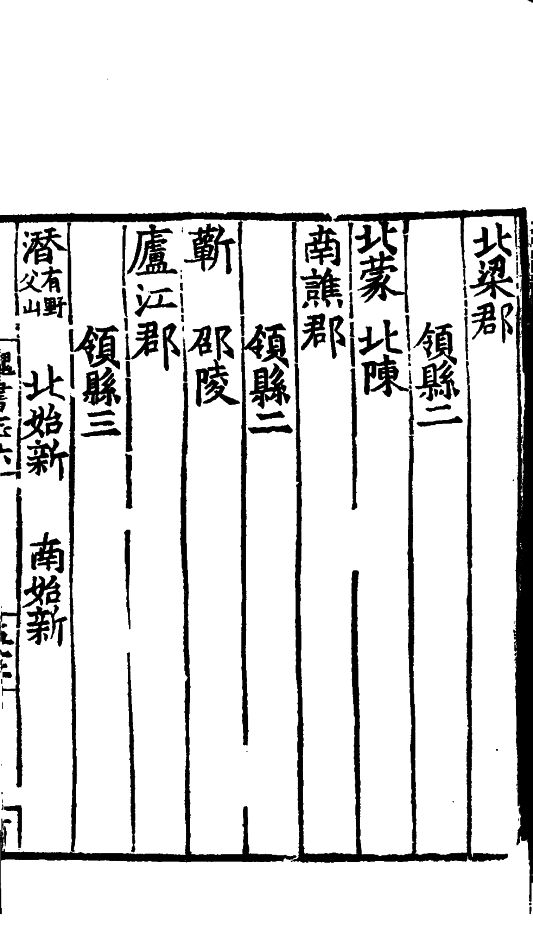 北梁郡
領縣二
北蒙 北陳
南譙郡
領縣二
蘄 邵陵
廬江郡
領縣三
潛有野父山 北始新 南始新